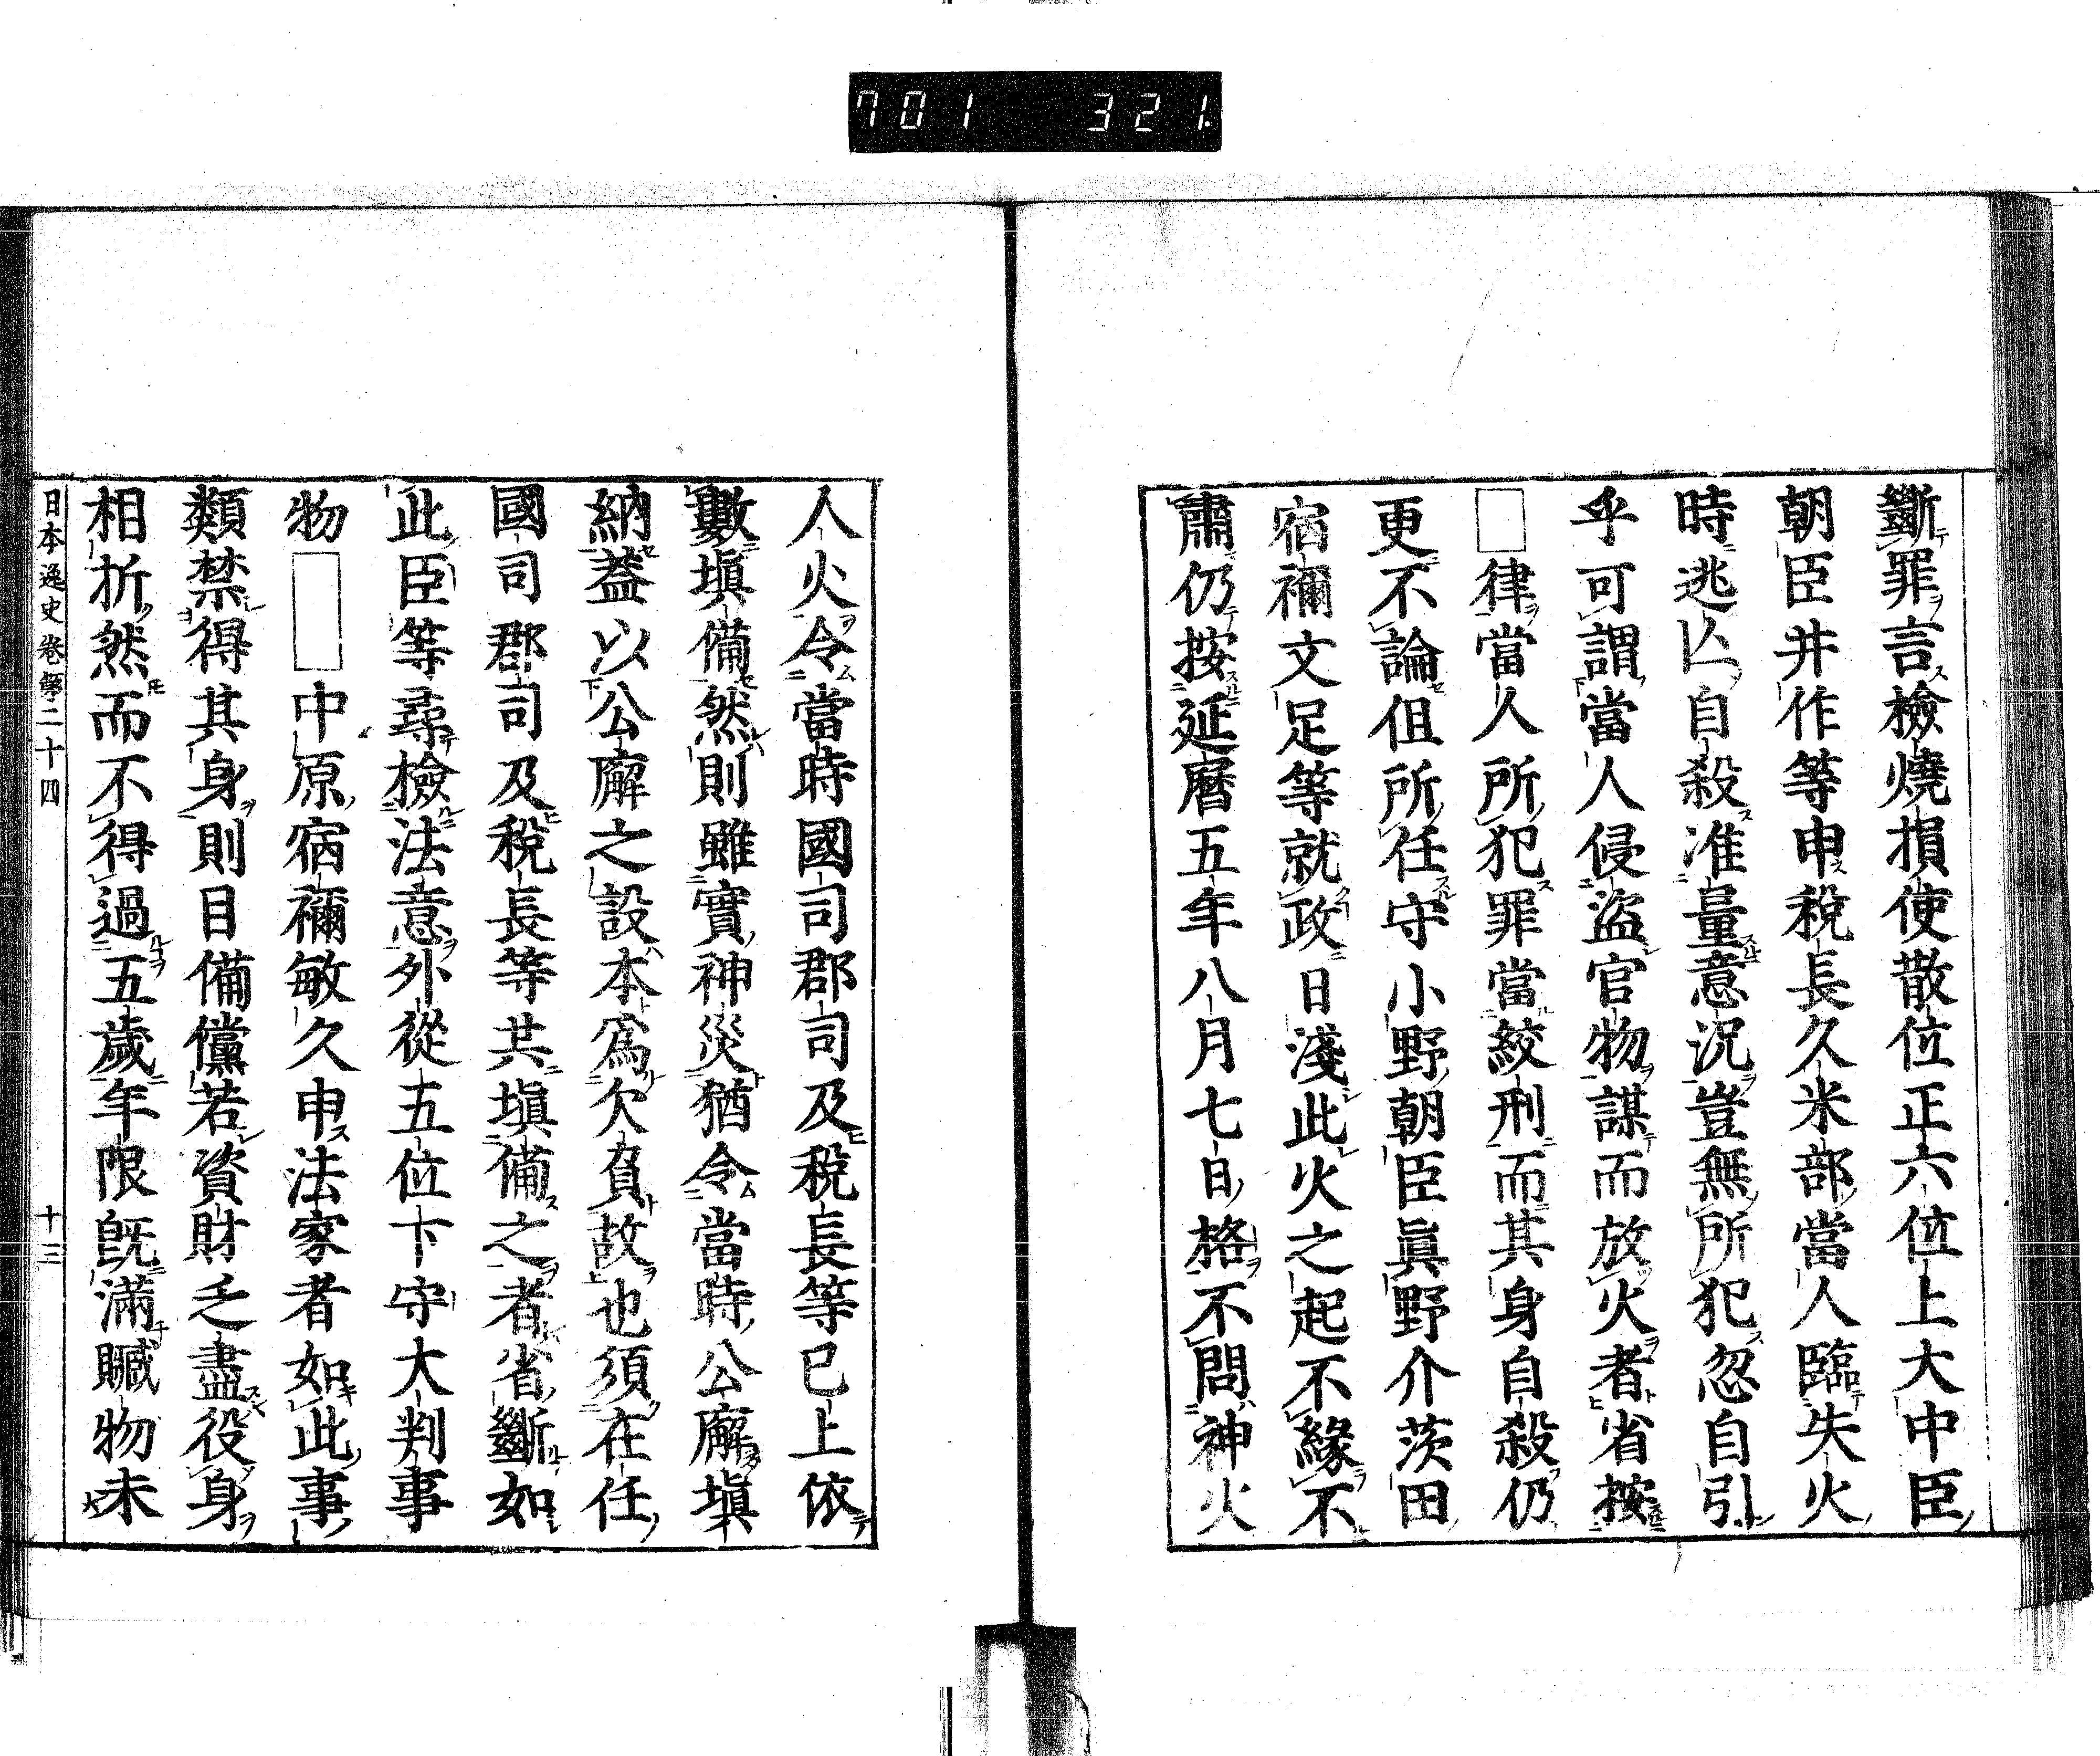 701 321.
斷罪言檢燒損使散位正六位上大中臣
朝臣井作等申稅長久米部當人臨失火
時逃亾自殺准量意況豈無所犯忽自引
乎可謂當人侵盜官物謀而放火者省按
□律當人所犯罪當絞刑而其身自殺仍
更不論但所任守小野朝臣眞野介茨田
宿禰文足等就政日淺此火之起不緣不
肅仍按延曆五年八月七日格不問神火
人火令當時國司郡司及稅長等已上依
數塡備然則雖實神災猶令當時公廨塡
納葢以公廨之設本爲欠負故也須在任
國司郡司及稅長等共塡備之者省斷如
此臣等尋檢法意外從五位下守大判事
物□中原宿禰敏久申法家者如此事
類禁得其身則目備儻若資財乏盡役身
相折然而不得過五歲年限旣滿贓物未
日本逸史卷第二十四 十三